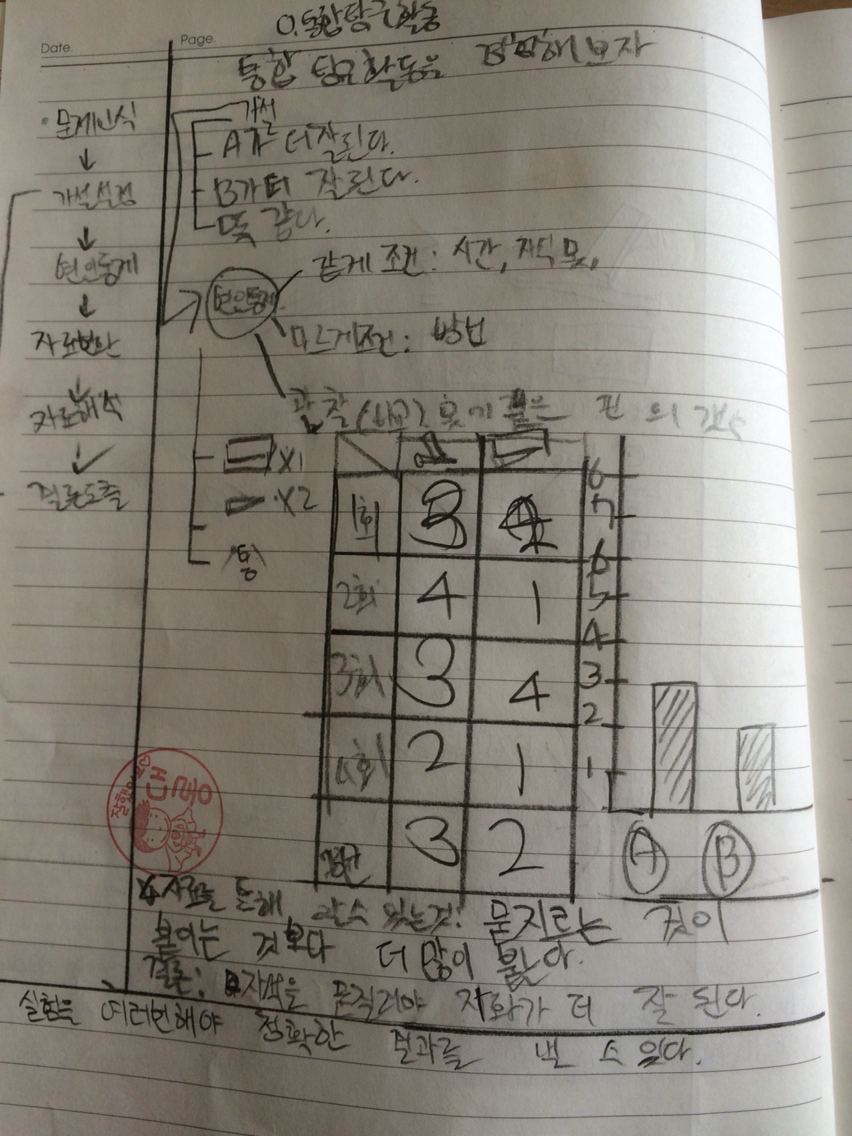 Date.
Page.
0.통합탐구활동
통합 탐구활동을 경험해보자
문제인식
↓
가설설정
↓
변인통제
↓
자료변환
↓
자료해석
↓
결론도출
가설
A가 더잘된다.
B가더 잘된다.
똑 같다.
변인통제
같게 조건: 시간, 자석 못,
다르게조건: 방법
관찰 못에 붙은 핀의 갯수
X1
X2
통
1회 3
2회 4 1
3회 3 4
4회 2 1
평균 3 2
6
7
6
5
4
3
2
1
A B
자료를 통해 알수 있는것! 문지르는 것이
붙이는 것보다 더 많이 붙는다.
결론: 자석은 문질러야 자화가 더 잘 된다.
실험을 여러번해야 정확한 결과를 낼 수 있다.